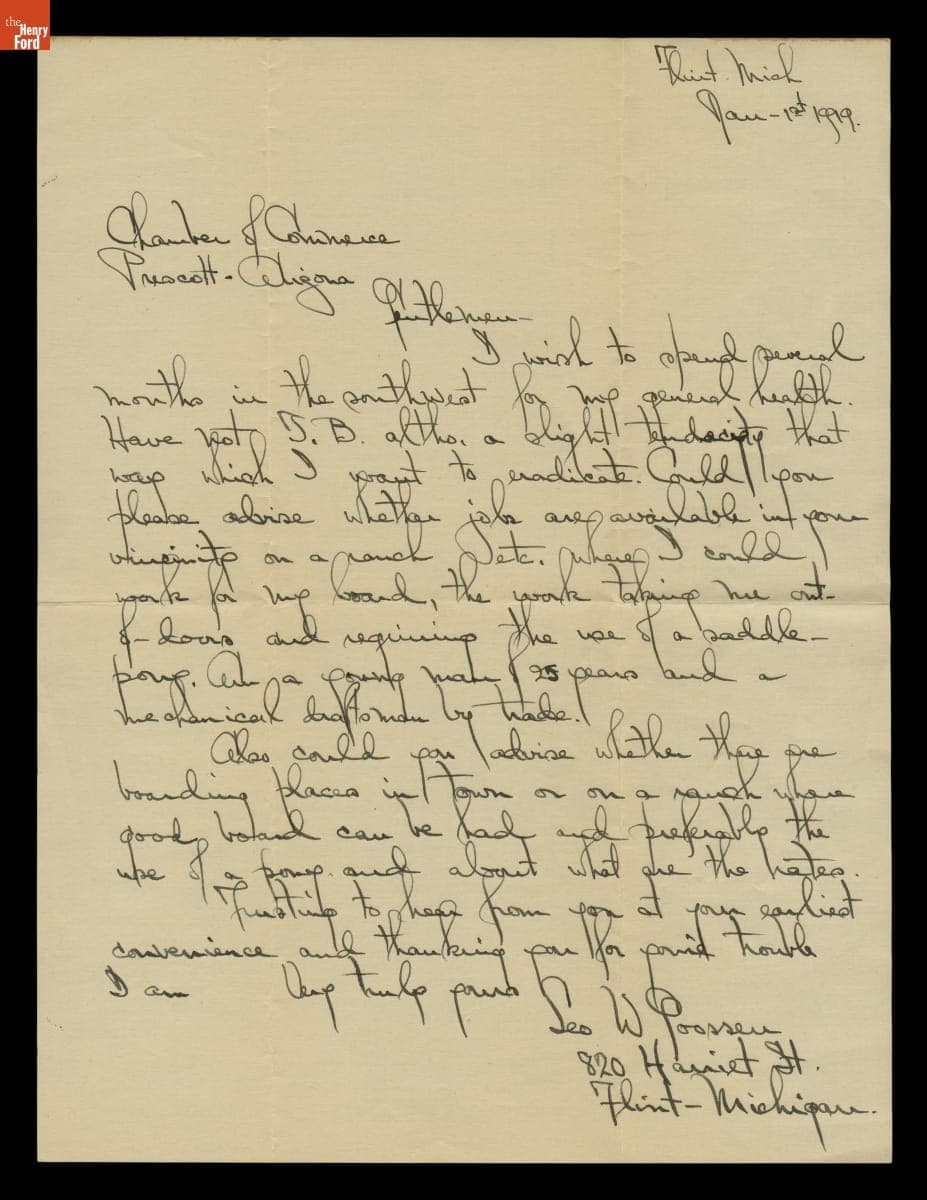 the
Henry
Ford
Flint. Mich
Jan - 1st 1919.
Chamber of Commerce
Prescott - Arizona
Gentlemen -
I wish to spend several
months in the southwest for my general health.
Have not T. B. altho. a slight tendacity that
way which I want to eradicate. Could you
please advise whether jobs are available in your
vincinity on a ranch etc. where I could
work for my board, the work taking me out-
of-doors and requiring the use of a saddle-
pony. Am a young man of 25 years and a
mechanical draftsman by trade.
Also could you advise whether there are
boarding places in town or on a ranch where
good board can be had and preferably the
use of a pony. and about what are the rates.
Trusting to hear from you at your earliest
convenience and thanking you for trouble
I am Very truly yours
Geo W Goossen
820 Harriet St.
Flint - Michigan.